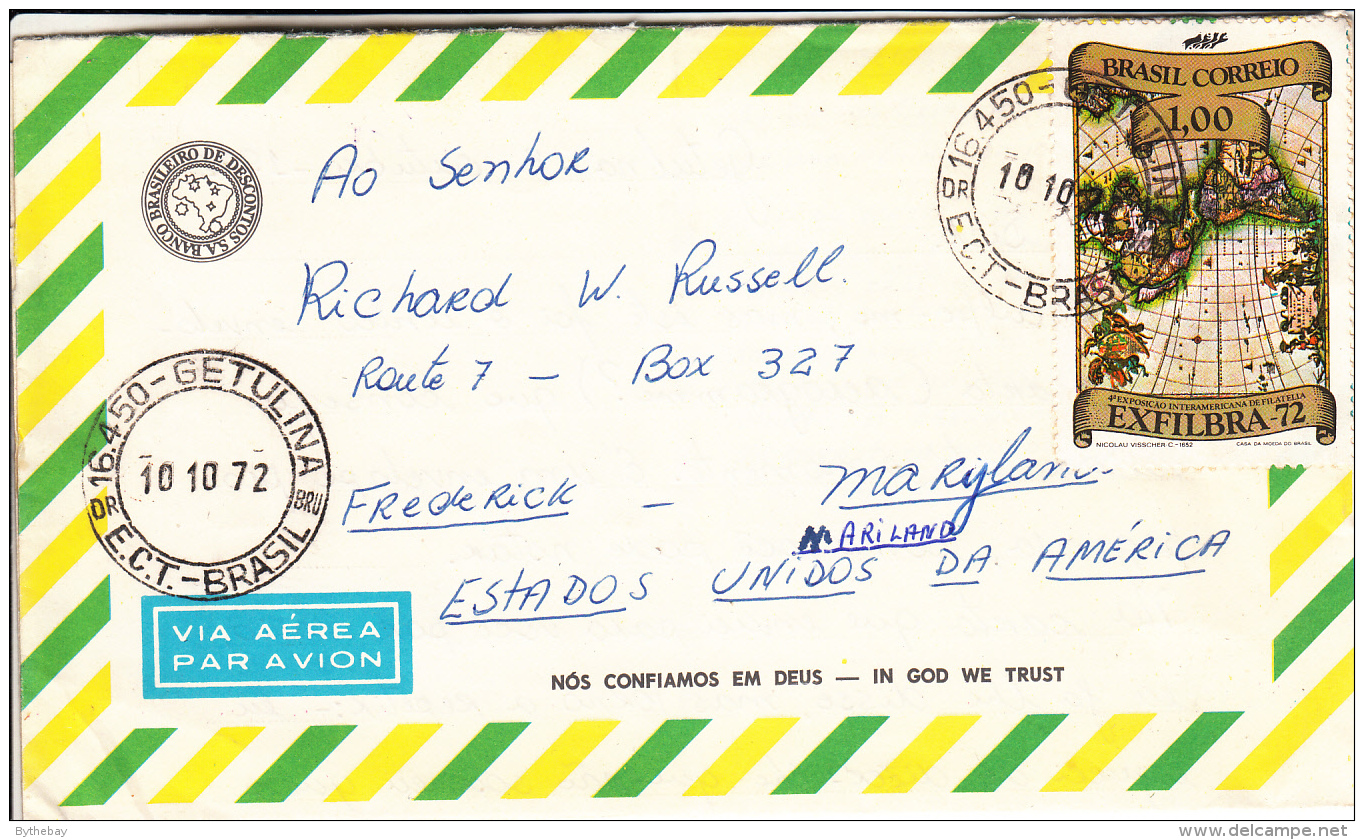 BRASIL CORREIO
1,00
16.450-GETULINA
DR
10 10 7
E.C.T.-BRASIL
BANCO BRASILEIRO DE DESCONTOS S.A.
Ao Senhor
Richard W. Russell.
Route 7 - Box 327
4ª EXPOSIÇÃO INTERAMERICANA DE FILATELIA
EXFILBRA-72
NICOLAU VISSCHER C-1652 CASA DA MOEDA DO BRASIL
16.450-GETULINA
DR 10 10 72 BRU
E.C.T.-BRASIL
Frederick - Maryland
MARILAND
ESTADOS UNIDOS DA AMÉRICA
VIA AÉREA
PAR AVION
NÓS CONFIAMOS EM DEUS — IN GOD WE TRUST
Bythebay
delcampe.net